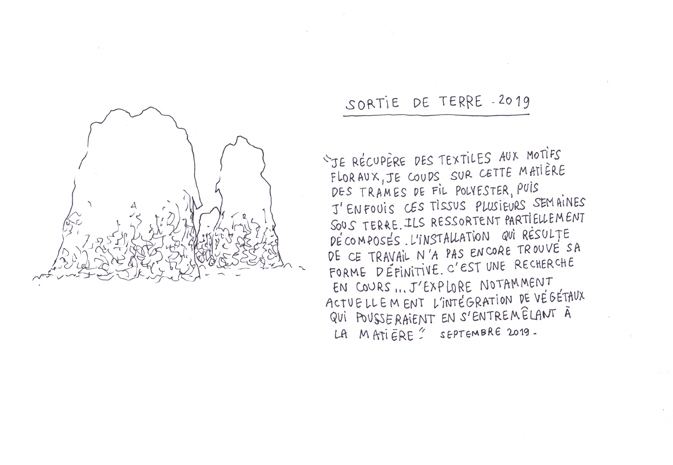 SORTIE DE TERRE - 2019
"JE RÉCUPÈRE DES TEXTILES AUX MOTIFS
FLORAUX, JE COUDS SUR CETTE MATIÈRE
DES TRAMES DE FIL POLYESTER, PUIS
J'ENFOUIS CES TISSUS PLUSIEURS SEMAINES
SOUS TERRE. ILS RESSORTENT PARTIELLEMENT
DÉCOMPOSÉS. L'INSTALLATION QUI RÉSULTE
DE CE TRAVAIL N'A PAS ENCORE TROUVÉ SA
FORME DÉFINITIVE. C'EST UNE RECHERCHE
EN COURS... J'EXPLORE NOTAMMENT
ACTUELLEMENT L'INTÉGRATION DE VÉGÉTAUX
QUI POUSSERAIENT EN S'ENTREMÊLANT À
LA MATIÈRE". SEPTEMBRE 2019.